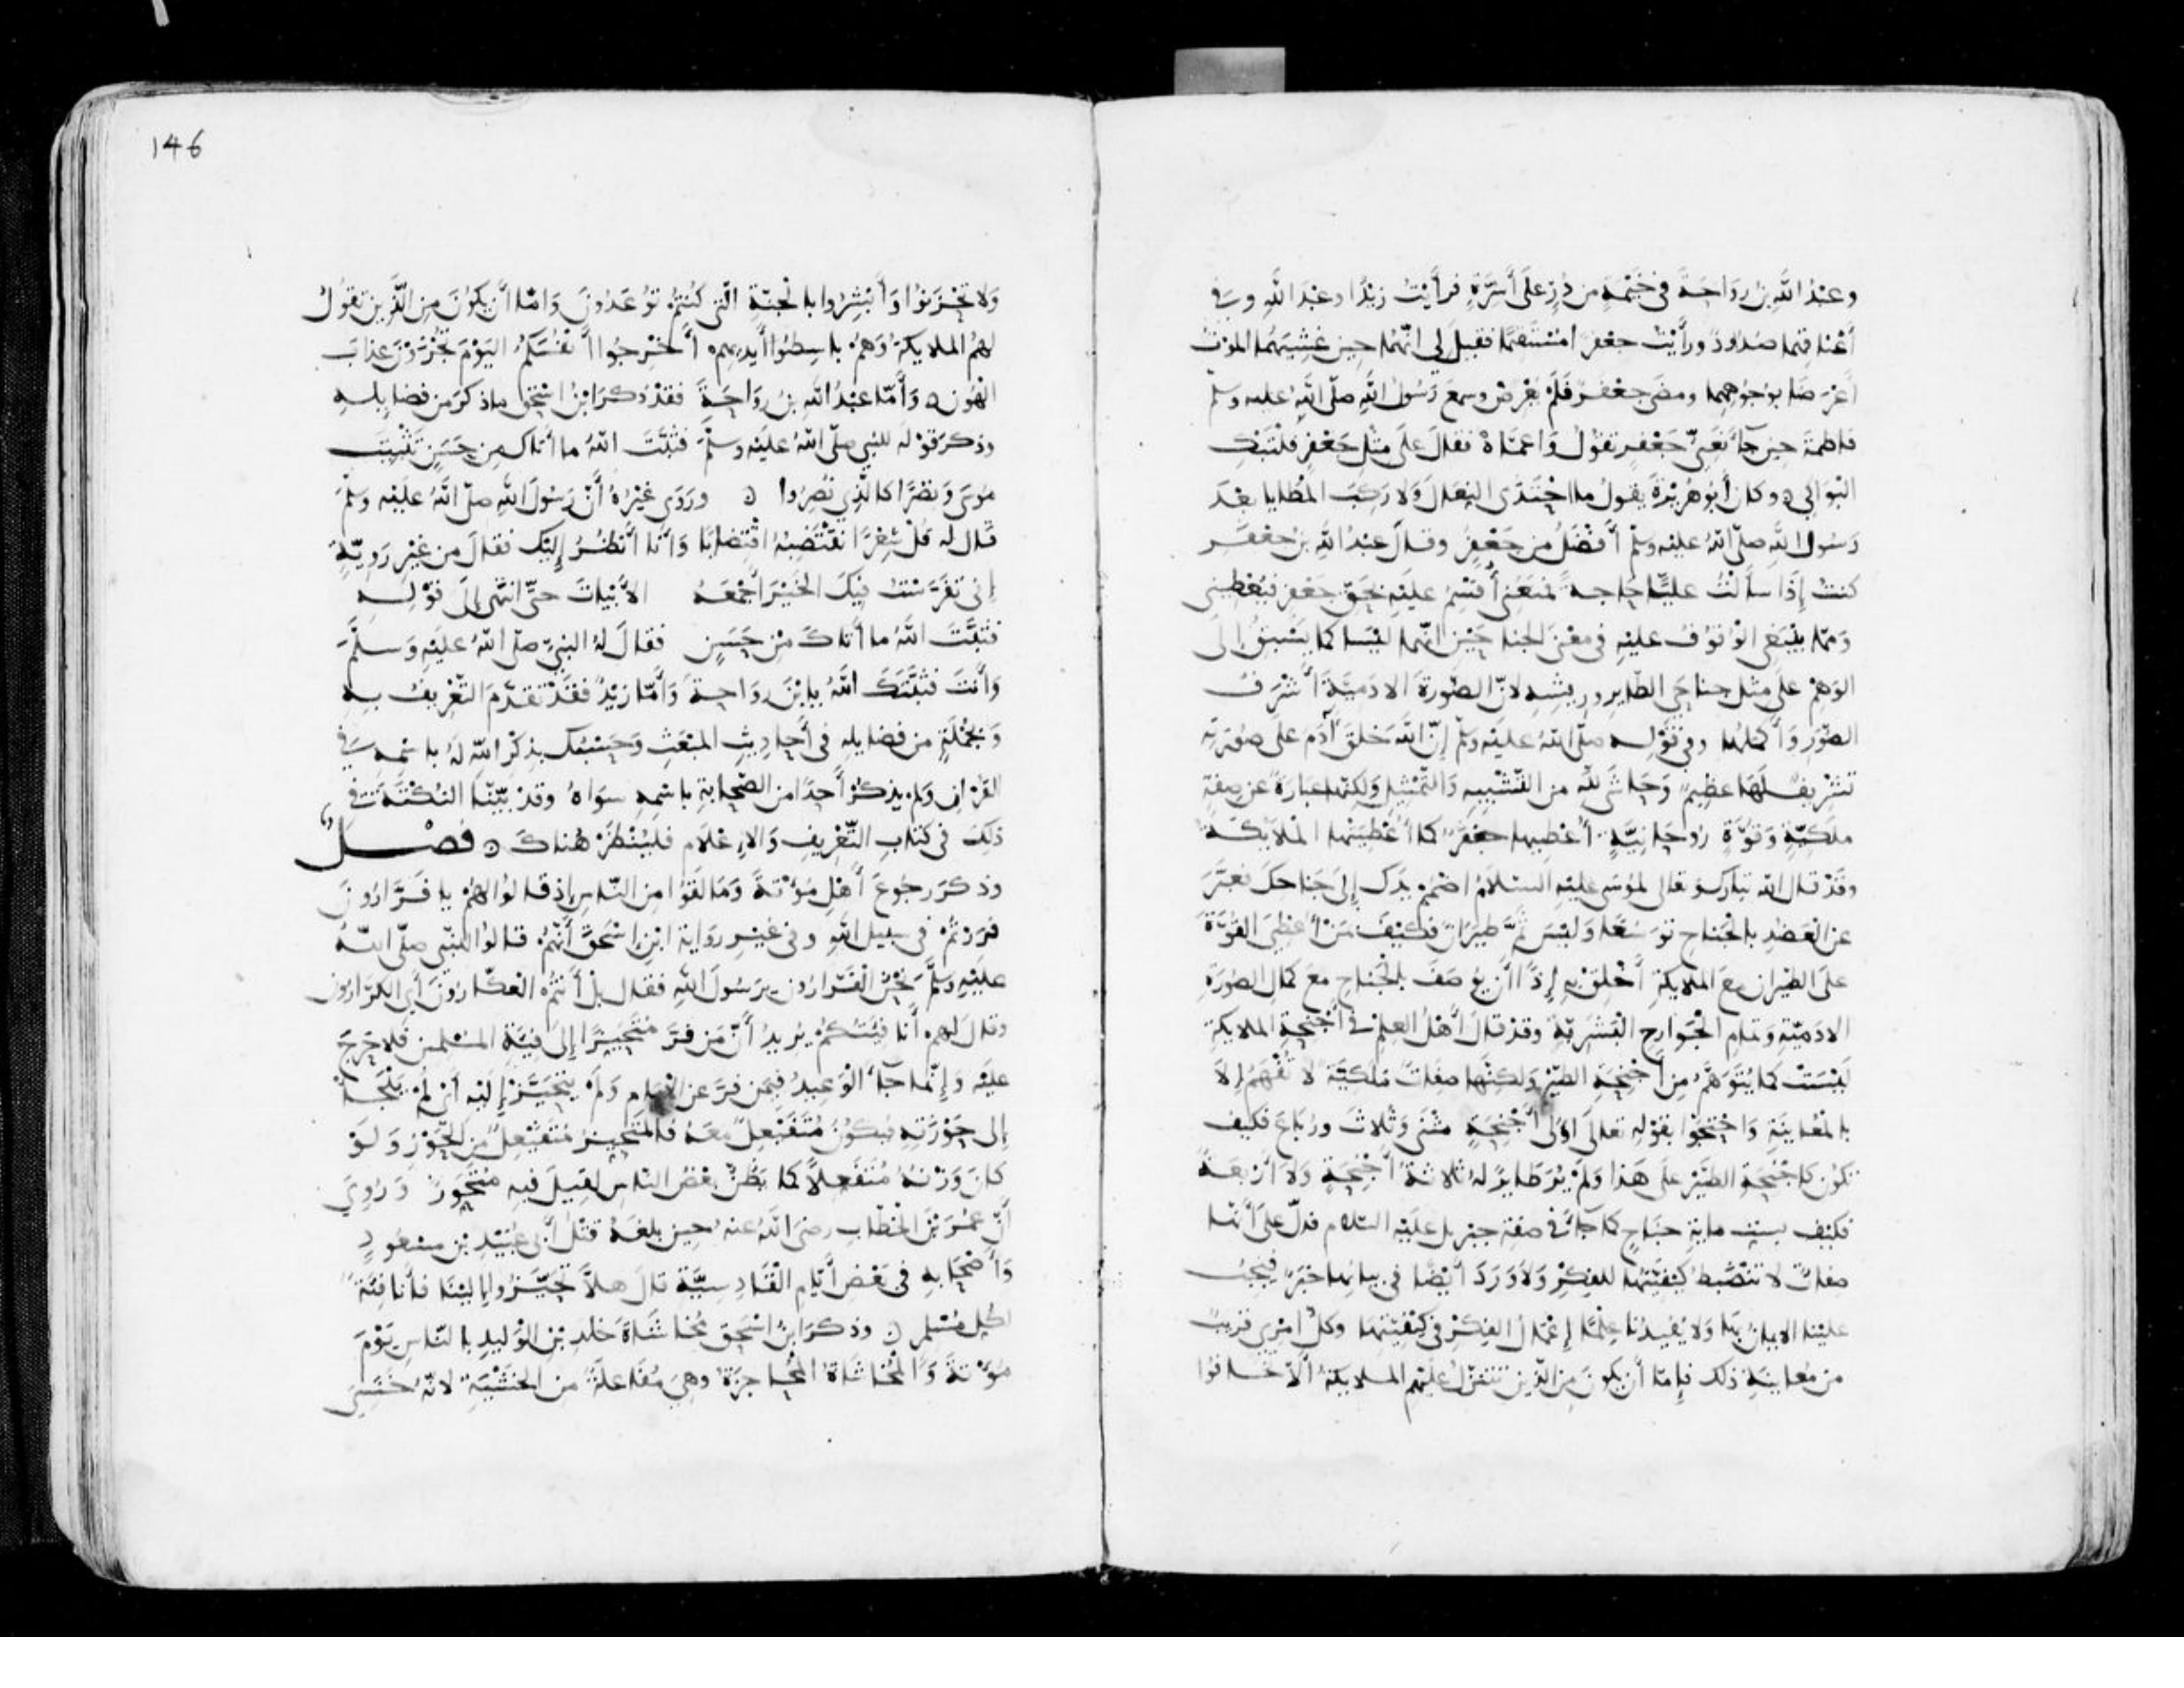 وعبْدُ اللَّهِ بنُ رَوَاحَةَ في خَيْمَةٍ من دُرٍّ على أَسِرَّةٍ فرأَيْتُ زيدًا وعبد اللَّهِ وفي
أعْنَاقِهِما صُدُودٌ ورأَيْتُ جعفرَ مُسْتَقيمًا فقيلَ لي إنّهُمَا حِينَ غَشِيَهُما المَوْتُ
أَعْرَضَا بوُجُوهِهِما ومضَى جعْفَرٌ فَلَمْ يُعْرِضْ وسمعَ رَسُولُ اللَّهِ صلّى اللَّهُ عليه وسلم
فاطمَةَ حِينَ جآءَ نَعيُّ جَعْفَرٍ تَقُولُ وَاعَمَّاهْ فقالَ عَلَى مِثْلِ جَعْفَرٍ فَلْتَبْكِ
البَوَاكِي ۞ وكان أَبُو هُرَيْرَةَ يقولُ ما احْتَذَى النِّعَالَ وَلا رَكِبَ المَطَايا بعْدَ
رَسُولِ اللَّهِ صلّى اللَّهُ عليْهِ وسلّم أَفْضَلُ من جَعْفَرٍ وقالَ عبْدُ اللَّهِ بنُ جعْفَرٍ
كنتُ إِذَا سأَلْتُ عليًّا حاجةً فمنَعَنِي أُقْسِمُ عليْهِ بحَقِّ جَعْفرٍ فيُعْطِيني
وَممّا يَنْبَغِي الوُقُوفُ عليْهِ في معْنَى الجناحَيْنِ انّهما ليْسَا كما يَسْبِقُ إِلَى
الوَهْمِ علَى مِثْلِ جناحَيِ الطّايِرِ وريشِهِ لأنّ الصّورةَ الادَميَّةَ أَشْرَفُ
الصّوَرِ وَأَكْمَلُها وفي قَوْلِهِ صلَّى اللَّهُ عليْهِ وسلّم إِنّ اللَّهَ خلقَ آدَمَ على صُورَتِهِ
تشْرِيفٌ لَهَا عظيمٌ وَحَاشَى لِلَّهِ من التّشْبِيهِ وَالتّمْثِيلِ وَلكنّها عبارَةٌ عن صِفةٍ
ملَكيّةٍ وَقُوّةٍ رُوحَانِيَّةٍ أُعْطِيَها جعْفَرٌ كما أُعْطِيَتْها المَلايكَةُ
وقدْ قال اللّه تباركَ وتعالى لمُوسَى عليْهِ السّلامُ اضمُمْ يدَك إِلَى جَناحكَ فعبَّرَ
عن العَضُدِ بالجَناحِ توَسُّعًا وَليْسَ ثَمَّ طيَرَانٌ فكَيْفَ بمَنْ أُعْطِيَ القوّةَ
علَى الطّيَرانِ معَ الملايكةِ أَخْلِقْ بهِ إِذًا أَنْ يُوصَفَ بالجَناحِ معَ كمالِ الصّورَةِ
الادَميّةِ وَتمامِ الجَوَارِحِ البَشَريّةِ وقدْ قالَ أَهْلُ العِلمِ في أَجْنحةِ الملايكةِ
ليْسَتْ كما يُتَوَهَّمُ مِن أَجْنحَةِ الطّيْرِ وَلكنَّها صفاتٌ ملَكيّةٌ لا تُفْهَمُ إِلاَّ
بالمُعاينَةِ وَاحْتَجُّوا بقَوْلِهِ تعالَى أُولِي أَجْنحَةٍ مثْنَى وَثُلاثَ وَرُبَاعَ فكيف
تكُونُ كأَجْنحَةِ الطّيْرِ علَى هَذا وَلَمْ يُرَ طَايِرٌ لهُ ثلاثةُ أَجْنحَةٍ وَلا أَرْبعَةٌ
فكيْفَ بستِّ مايةِ جنَاحٍ كما جآءَ في صفةِ جبريل علَيْهِ السّلام فدلّ علَى أَنّها
صفاتٌ لا تنْضَبطُ كيْفيّتُها للفِكْرِ وَلا وَرَدَ أَيْضًا في بيانِها خبَرٌ فيَجِبُ
عليْنا الايمانُ بها وَلا يُفيدُنا عِلْمًا إعْمالُ الفِكْرِ في كيْفيّتِها وكلُّ امْرِئٍ قريبٌ
من مُعاينَةِ ذلك فإِمّا أن يكُونَ مِن الّذِينَ تتَنزَّلُ عليْهم الملايكةُ ألّا تخافوا
146
وَلا تحْزَنُوا وَأَبْشِرُوا بالجَنّةِ الّتي كُنتُمْ تُوعَدُونَ وَامّا أَن يكُونَ مِن الّذِينَ تقُولُ
لهمُ الملايكةُ وَهمْ باسِطُوا أَيديهِمْ أَخْرِجُوا أَنْفُسَكُمُ اليَوْمَ تُجْزَوْنَ عذابَ
الهُونِ ۞ وَأَمّا عبْدُ اللَّهِ بنُ رَوَاحَةَ فقدْ ذكرَ ابْنُ اسْحَق ماذكرَ من فضايِلِهِ
وذكرَ قوْلَه للنبي صلّى اللَّهُ عليْهِ وسلّمَ فثبَّتَ اللَّهُ ما أَتاكَ مِن حسَنٍ تَثْبِيتَ
مُوسَى وَنصْرًا كالّذِي نُصِرُوا ۞ ورَوَى غيْرُهُ أَنّ رَسُولَ اللَّهِ صلّى اللَّهُ عليْهِ وسلّمَ
قالَ له قُلْ شِعْرًا تقْتَضِبُهُ اقْتِضابًا وَأَنَا أَنْظُرُ إِليْكَ فقالَ من غيْرِ رَوِيّةٍ
إِنِّي تفَرّسْتُ فيكَ الخَيْرَ أَجْمَعَهُ الأَبْيَاتَ حتّى انتهَى إِلَى قوْلِهِ
فثبَّتَ اللَّهُ ما أَتاكَ مِنْ حسَنٍ فقالَ لهُ النبيّ صلّى اللَّهُ عليْهِ وَسلّمَ
وَأَنتَ فثبَّتَكَ اللَّهُ يابْنَ رَوَاحةَ وَأَمّا زيْدٌ فقدْ تقدّمَ التّعْرِيفُ بهِ
وَبجُمْلَةٍ من فضايلهِ في أَحادِيثِ المبْعَثِ وَحَسْبُكَ بذِكْرِ اللَّهِ لهُ باسْمِهِ في
القرْانِ وَلم يذكُرْ أَحدًا من الصّحَابةِ باسْمِهِ سوَاهُ وقدْ بيّنّا النُّكْتَةَ في
ذلِكَ في كتابِ التّعْرِيفِ وَالإِعْلَامِ فليُنْظَرْ هُناكَ ۞ فصْلٌ
وذكرَ رجُوعَ أَهْلِ مُؤْتةَ وَمَا لقُوا مِن النّاسِ إِذ قالُوا لهُمْ يا فَرَّارُونَ
فرَرْتُمْ في سبيلِ اللَّهِ وفي غيْرِ رِوَايةِ ابْنِ اسْحَقَ أَنّهُمْ قالُوا للنّبي صلّى اللَّهُ
عليْهِ وسلّمَ نحْنُ الفَرّارُونَ يرَسُولَ اللَّهِ فقالَ بلْ أَنتُمُ العَكّارُونَ أَي الكرّارُون
وقالَ لهمْ أَنا فِئتُكُمْ يُرِيدُ أَنّ مَن فرَّ مُتحيّزًا إِلى فِئةِ المُسْلمينَ فلا حرَجَ
عليْهِ وَإِنّما جآءَ الوَعِيدُ فيمَن فرَّ عن الإمام وَلَمْ يتَحيَّزْ إِليْهِ أي لَمْ يلْجَأْ
إِلى حَوْزَتِهِ فيكُونَ مُتَفَيْعِلٌ معَهُ فالمتحيِّزُ مُتَفَيْعِلٌ من الحَوْزِ وَلوْ
كانَ وَزْنُهُ مُتَفَعِّلاً كما يظُنُّ بعْضُ النّاسِ لقِيلَ فيهِ مُتحَوِّزٌ وَرُوِيَ
أَنّ عُمَرَ بْنَ الخَطّابِ رضيَ اللَّهُ عنه حينَ بلغَهُ قتْلُ أَبي عُبَيْدِ بن مسْعُودٍ
وَأَصْحَابِهِ في بعْضِ أَيّامِ القَادِسِيّةِ قالَ هلاّ تحيّزُوا إِليْنَا فأَنا فِئَةٌ
لكُلِّ مُسْلمٍ ۞ وذكرَ ابْنُ اسْحَق مُخَاشَاةَ خالدِ بْنِ الوَلِيدِ بالنّاسِ يَوْمَ
مُؤْتةَ وَالمُخَاشَاةُ المُحَاجزَةُ وهيَ مُفَاعلَةٌ من الخَشْيَةِ لأنّهُ خَشِيَ